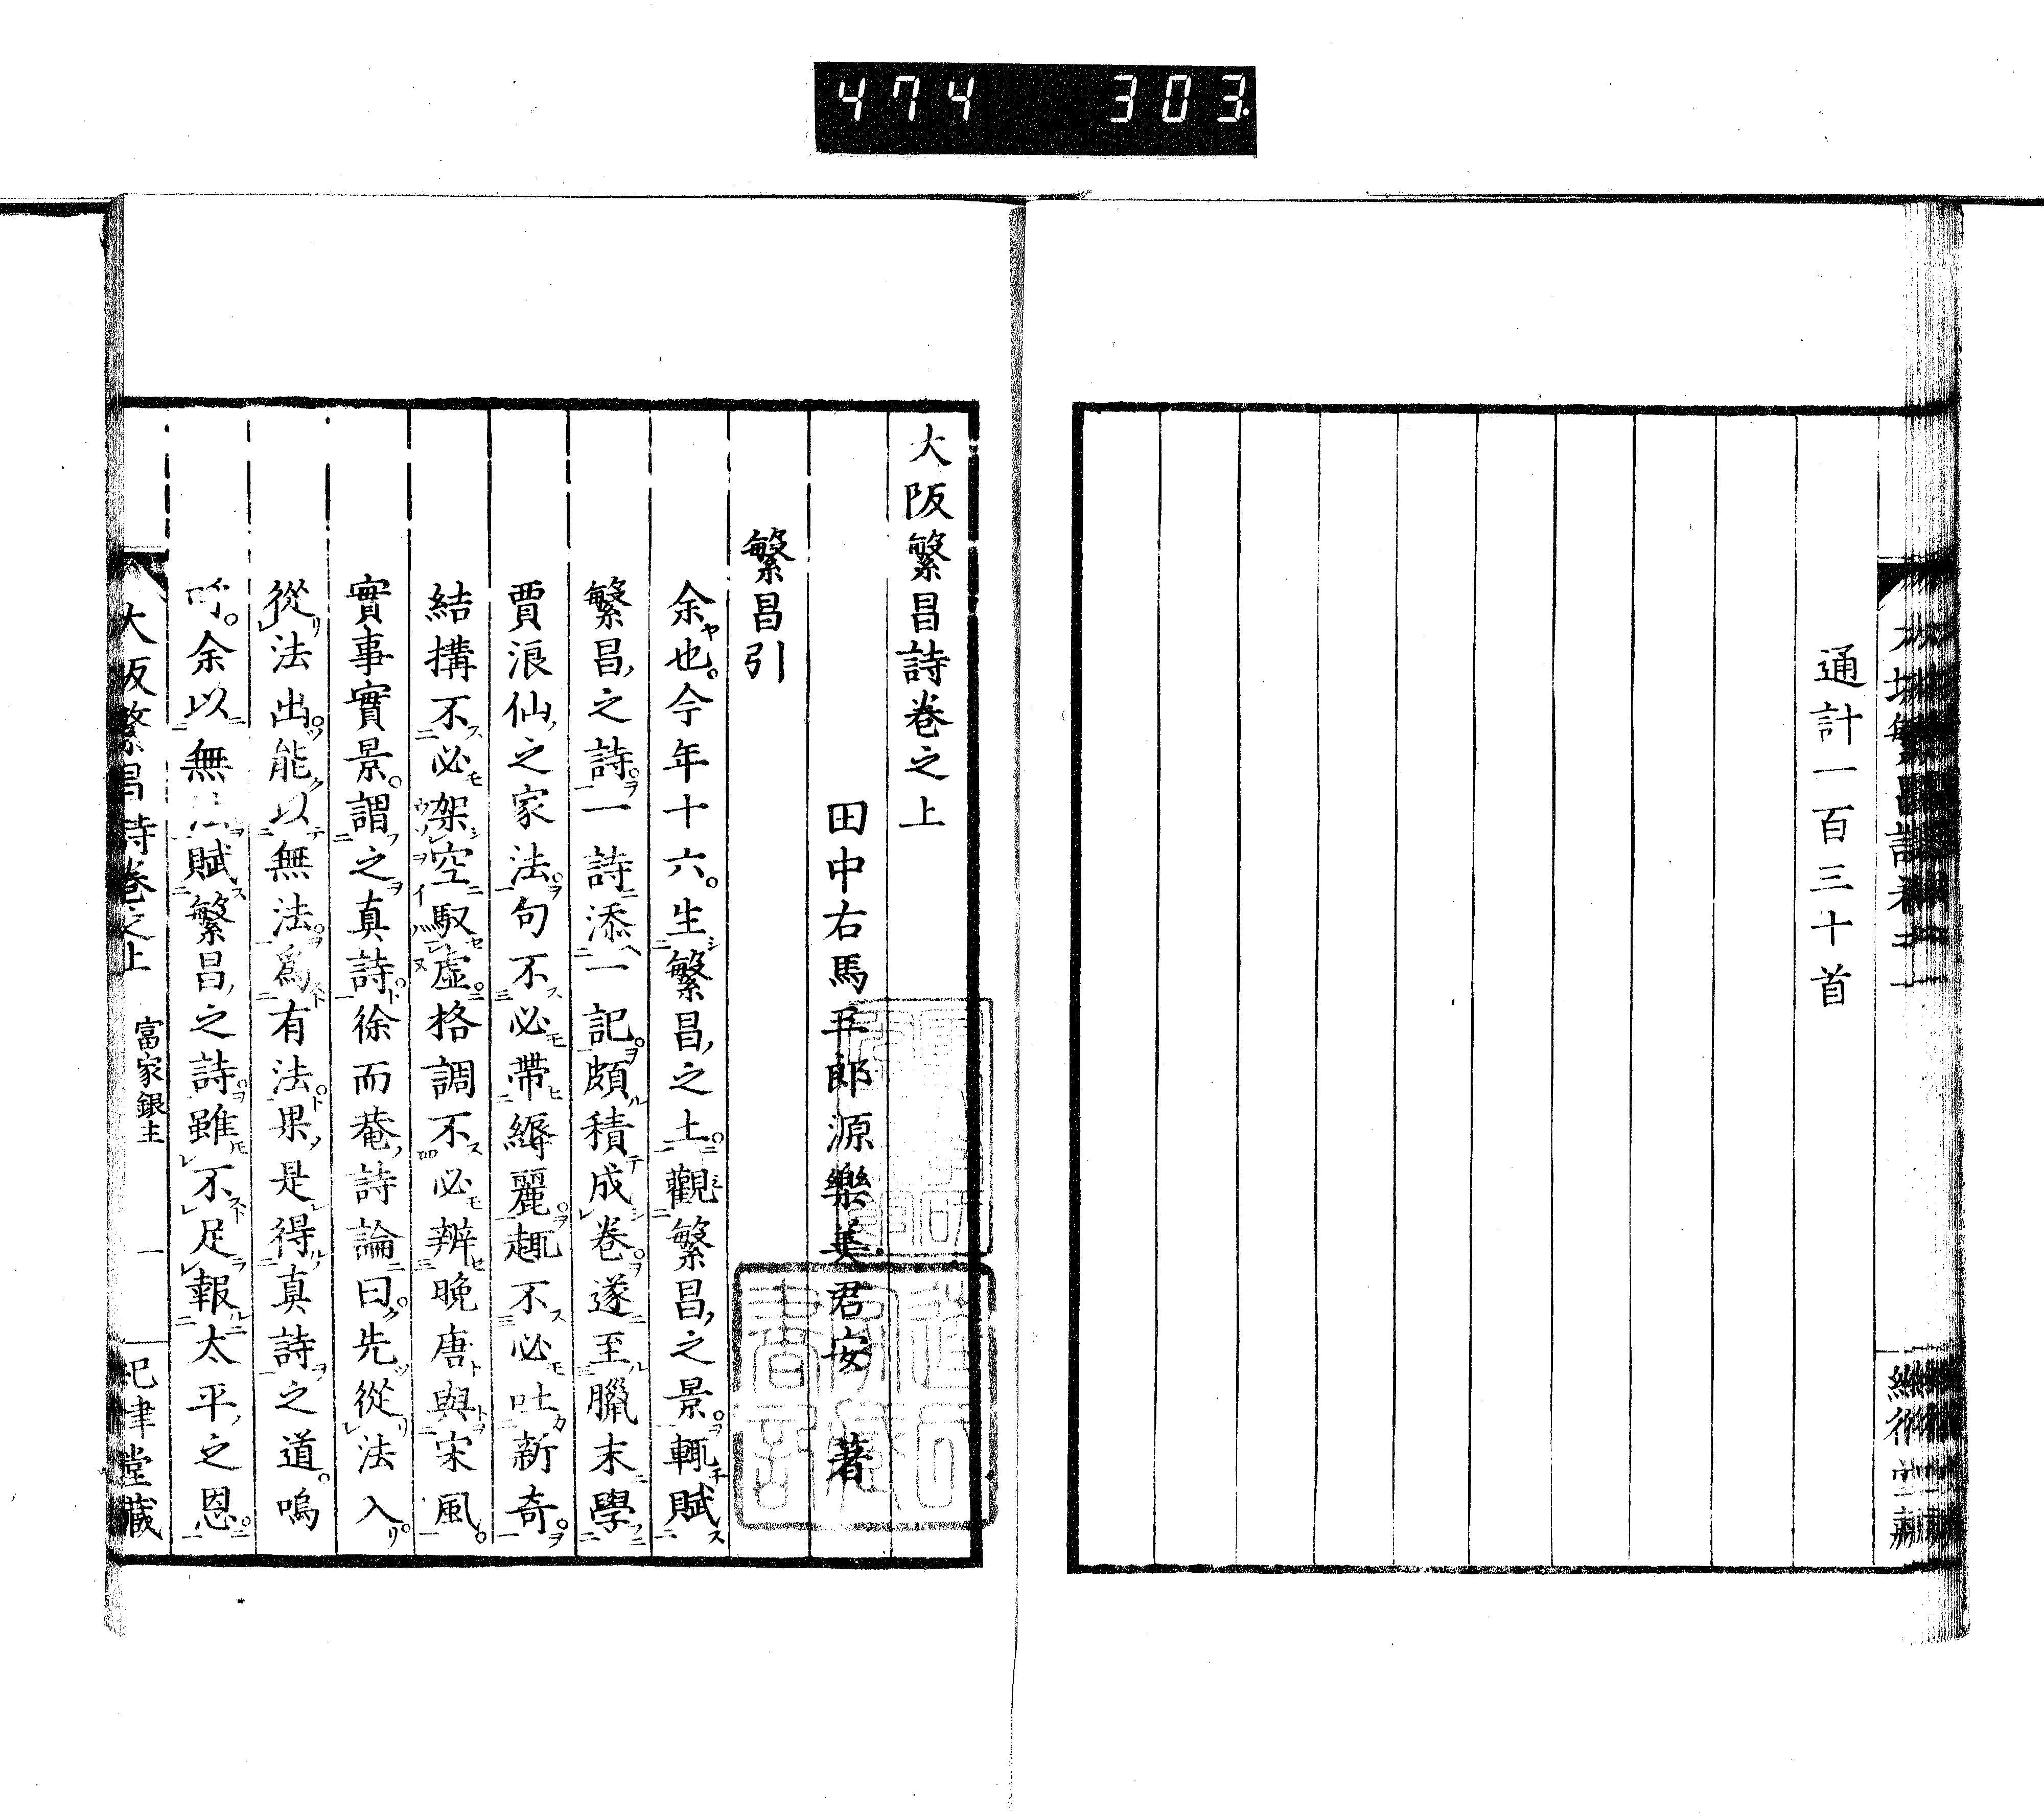 474 303
通計一百三十首
大阪繁昌詩卷之上
田中右馬三郎源樂美君安 著
繁昌引
余也。今年十六。生繁昌之土。觀繁昌之景。輒賦
繁昌之詩。一詩添一記。頗積成卷。遂至臘末。學
賈浪仙之家法。句不必帶縟麗。趣不必吐新奇。
結搆不必架空馭虛。格調不必辨晚唐與宋風。
實事實景。謂之真詩。徐而菴詩論曰。先從法入。
從法出。能以無法。爲有法。果是得真詩之道。嗚
呼。余以無法賦繁昌之詩。雖不足報太平之恩。
大阪繁昌詩卷之上 富家銀主 一